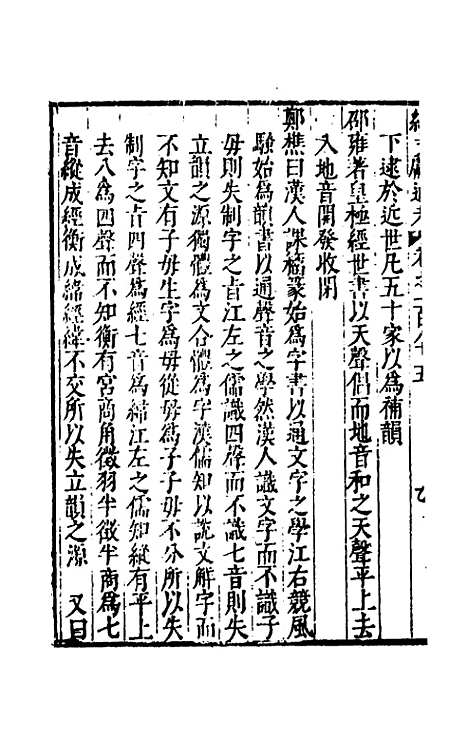 下逮於近世凡五十家以爲補韻
邵雍著皇極經世書以天聲倡而地音和之天聲平上去
入地音開發收閉
鄭樵曰漢人課籀篆始爲字書以通文字之學江右競風
騷始爲韻書以通聲音之學然漢人識文字而不識子
毋則失制字之㫖江左之儒識四聲而不識七音則失
立韻之源獨體爲文合體爲字漢儒知以說文解字而
不知文有子毋生字爲毋從毋爲子子毋不分所以失
制字之㫖四聲爲經七音爲緯江左之儒知縱有平上
去入爲四聲而不知衡有宮商角徵羽半徵半商爲七
音縱成經衡成緯經緯不交所以失立韻之源　又曰